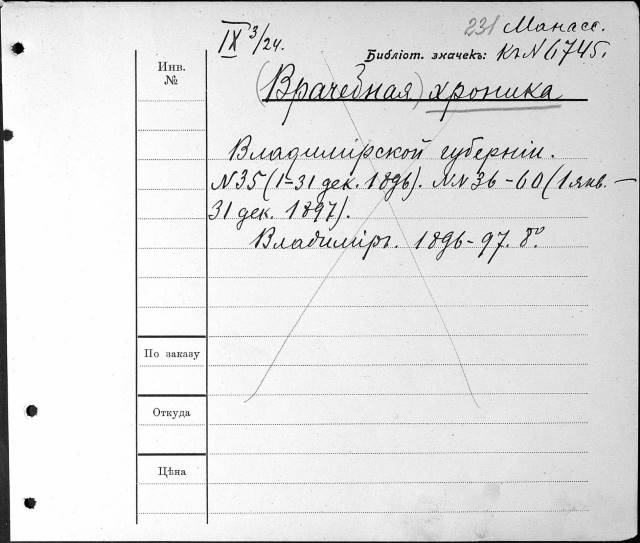 IX 3/24.
231 Манасс.
Библіот. значекъ: Къ N 6745.
Инв.
№
(Врачебная) хроника
Владимірской губерніи.
N 35 (1-31 дек. 1896). NN 36-60 (1 янв. —
31 дек. 1897).
Владиміръ. 1896-97. 8º.
По заказу
Откуда
Цѣна